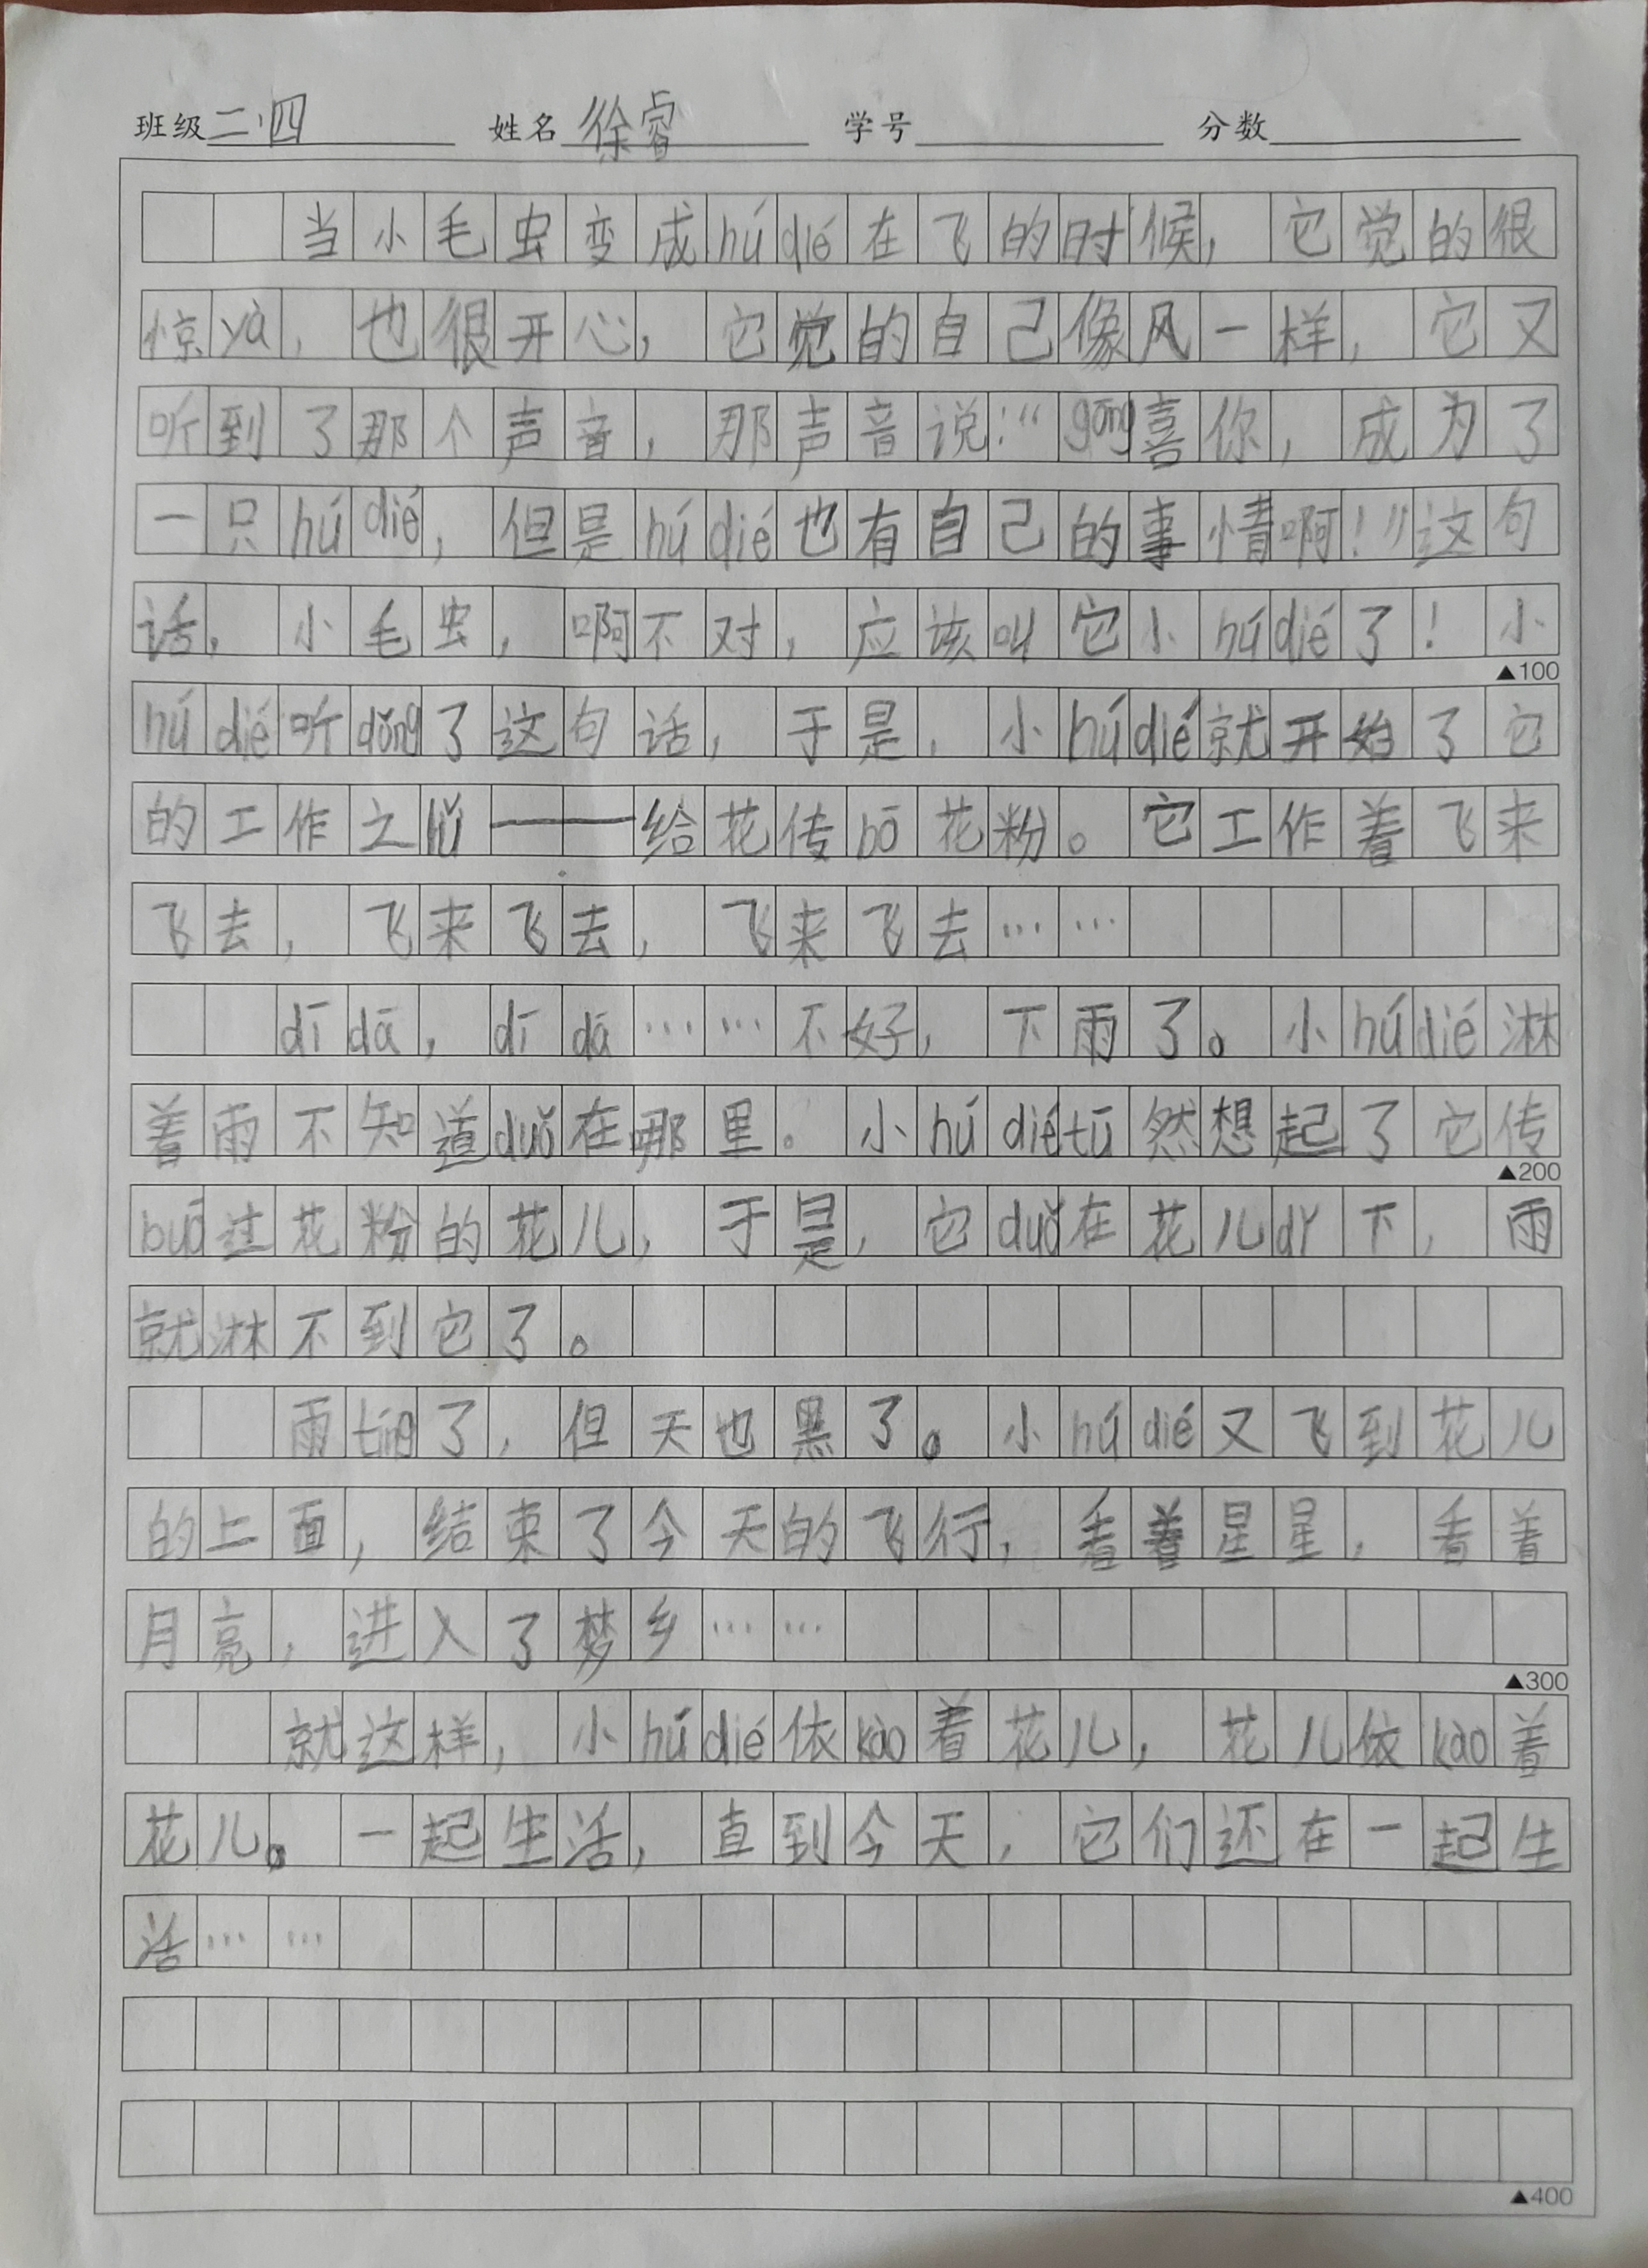 班级二·四 姓名徐睿 学号 分数
当小毛虫变成húdié在飞的时候，它觉的很
惊yà，也很开心，它觉的自己像风一样，它又
听到了那个声音，那声音说：“gōng喜你，成为了
一只húdié，但是húdié也有自己的事情啊！”这句
话，小毛虫，啊不对，应该叫它小húdié了！小
▲100
húdié听dǒng了这句话，于是，小húdié就开始了它
的工作之lǚ——给花传bō花粉。它工作着飞来
飞去，飞来飞去，飞来飞去……
dīdā，dīdā……不好，下雨了。小húdié淋
着雨不知道duǒ在哪里。小húdiétū然想起了它传
▲200
buō过花粉的花儿，于是，它duǒ在花儿dǐ下，雨
就淋不到它了。
雨tíng了，但天也黑了。小húdié又飞到花儿
的上面，结束了今天的飞行，看着星星，看着
月亮，进入了梦乡……
▲300
就这样，小húdié依kào着花儿，花儿依kào着
花儿。一起生活，直到今天，它们还在一起生
活……
▲400